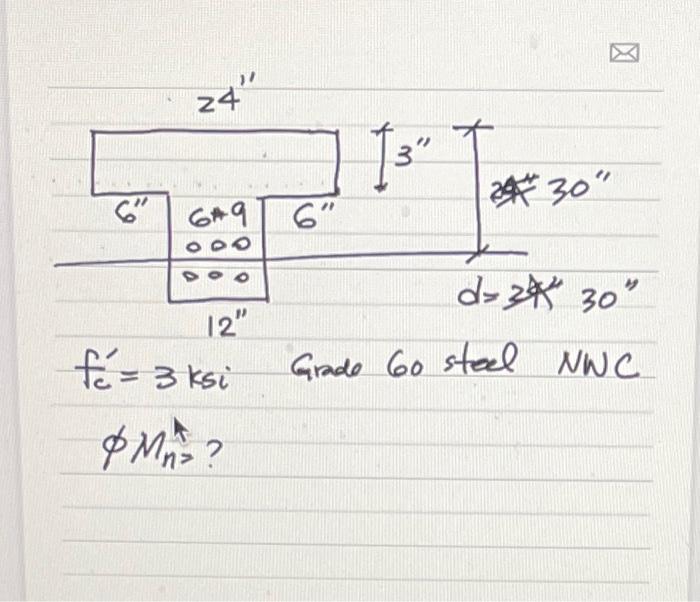 24"
3"
30"
6" 6#9 6"
d= 30"
12"
f'c = 3 ksi Grade 60 steel NWC
ϕ Mn= ?